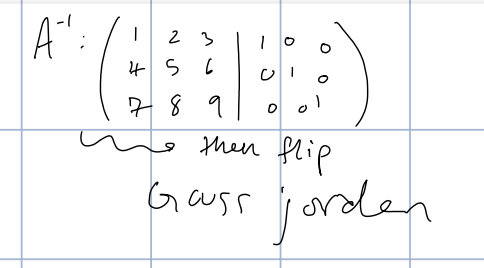 A⁻¹: ( 1 2 3 | 1 0 0
4 5 6 | 0 1 0
7 8 9 | 0 0 1 )
then flip
Gauss jorden